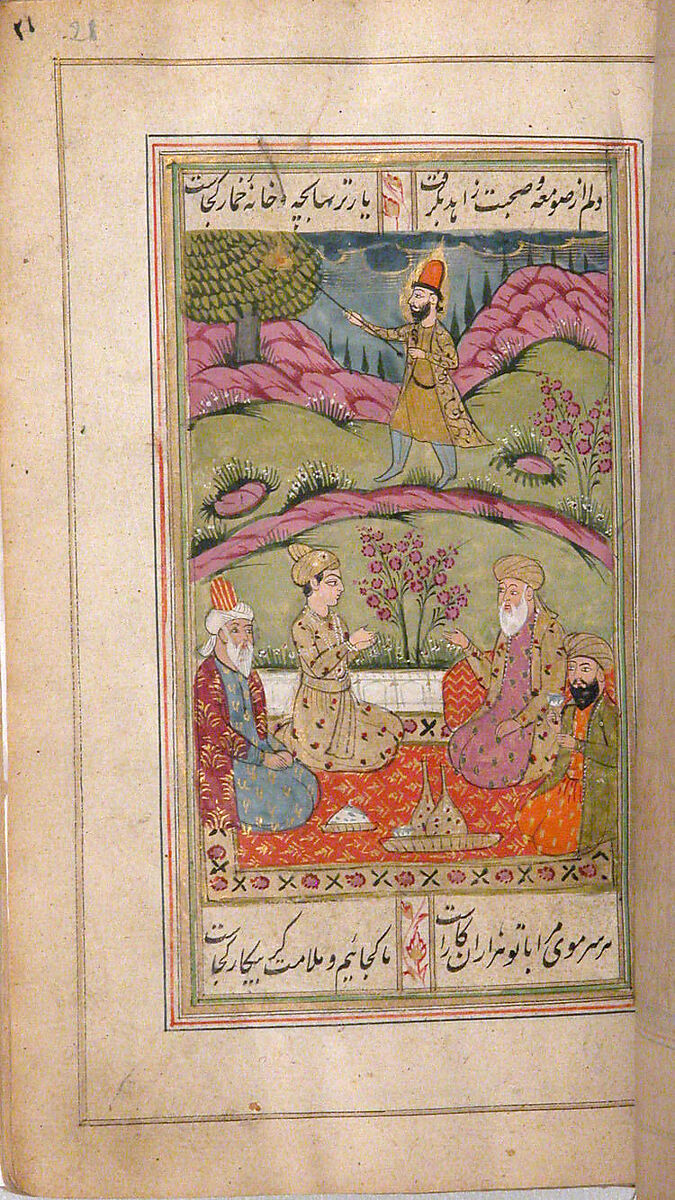 ۲۱
دلم از صومعه و صحبت زاهد بگرفت یار ترسابچه و خانهٔ خمار کجاست
هر سر موی مرا با تو هزاران کار است ما کجائیم و ملامت گر بیکار کجاست